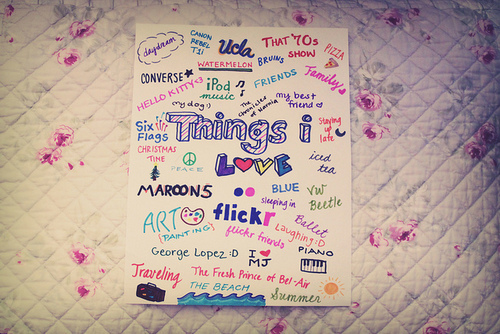 daydream
CANON
REBEL
T1i
Ucla
BRUINS
THAT '70s
SHOW
PIZZA
WATERMELON
CONVERSE
HELLO KITTY <3
iPod
music
FRIENDS
Family
my dog :)
The
chronicles
of Narnia
my best
friend
Six
Flags
Things i
LOVE
staying
up
late
CHRISTMAS
TIME
PEACE
iced
tea
MAROON 5
BLUE
sleeping in
VW
Beetle
ART
(PAINTING)
flickr
flickr friends
Ballet
Laughing :D
George Lopez :D
I
MJ
PIANO
Traveling
The Fresh Prince of Bel-Air
THE BEACH
Summer